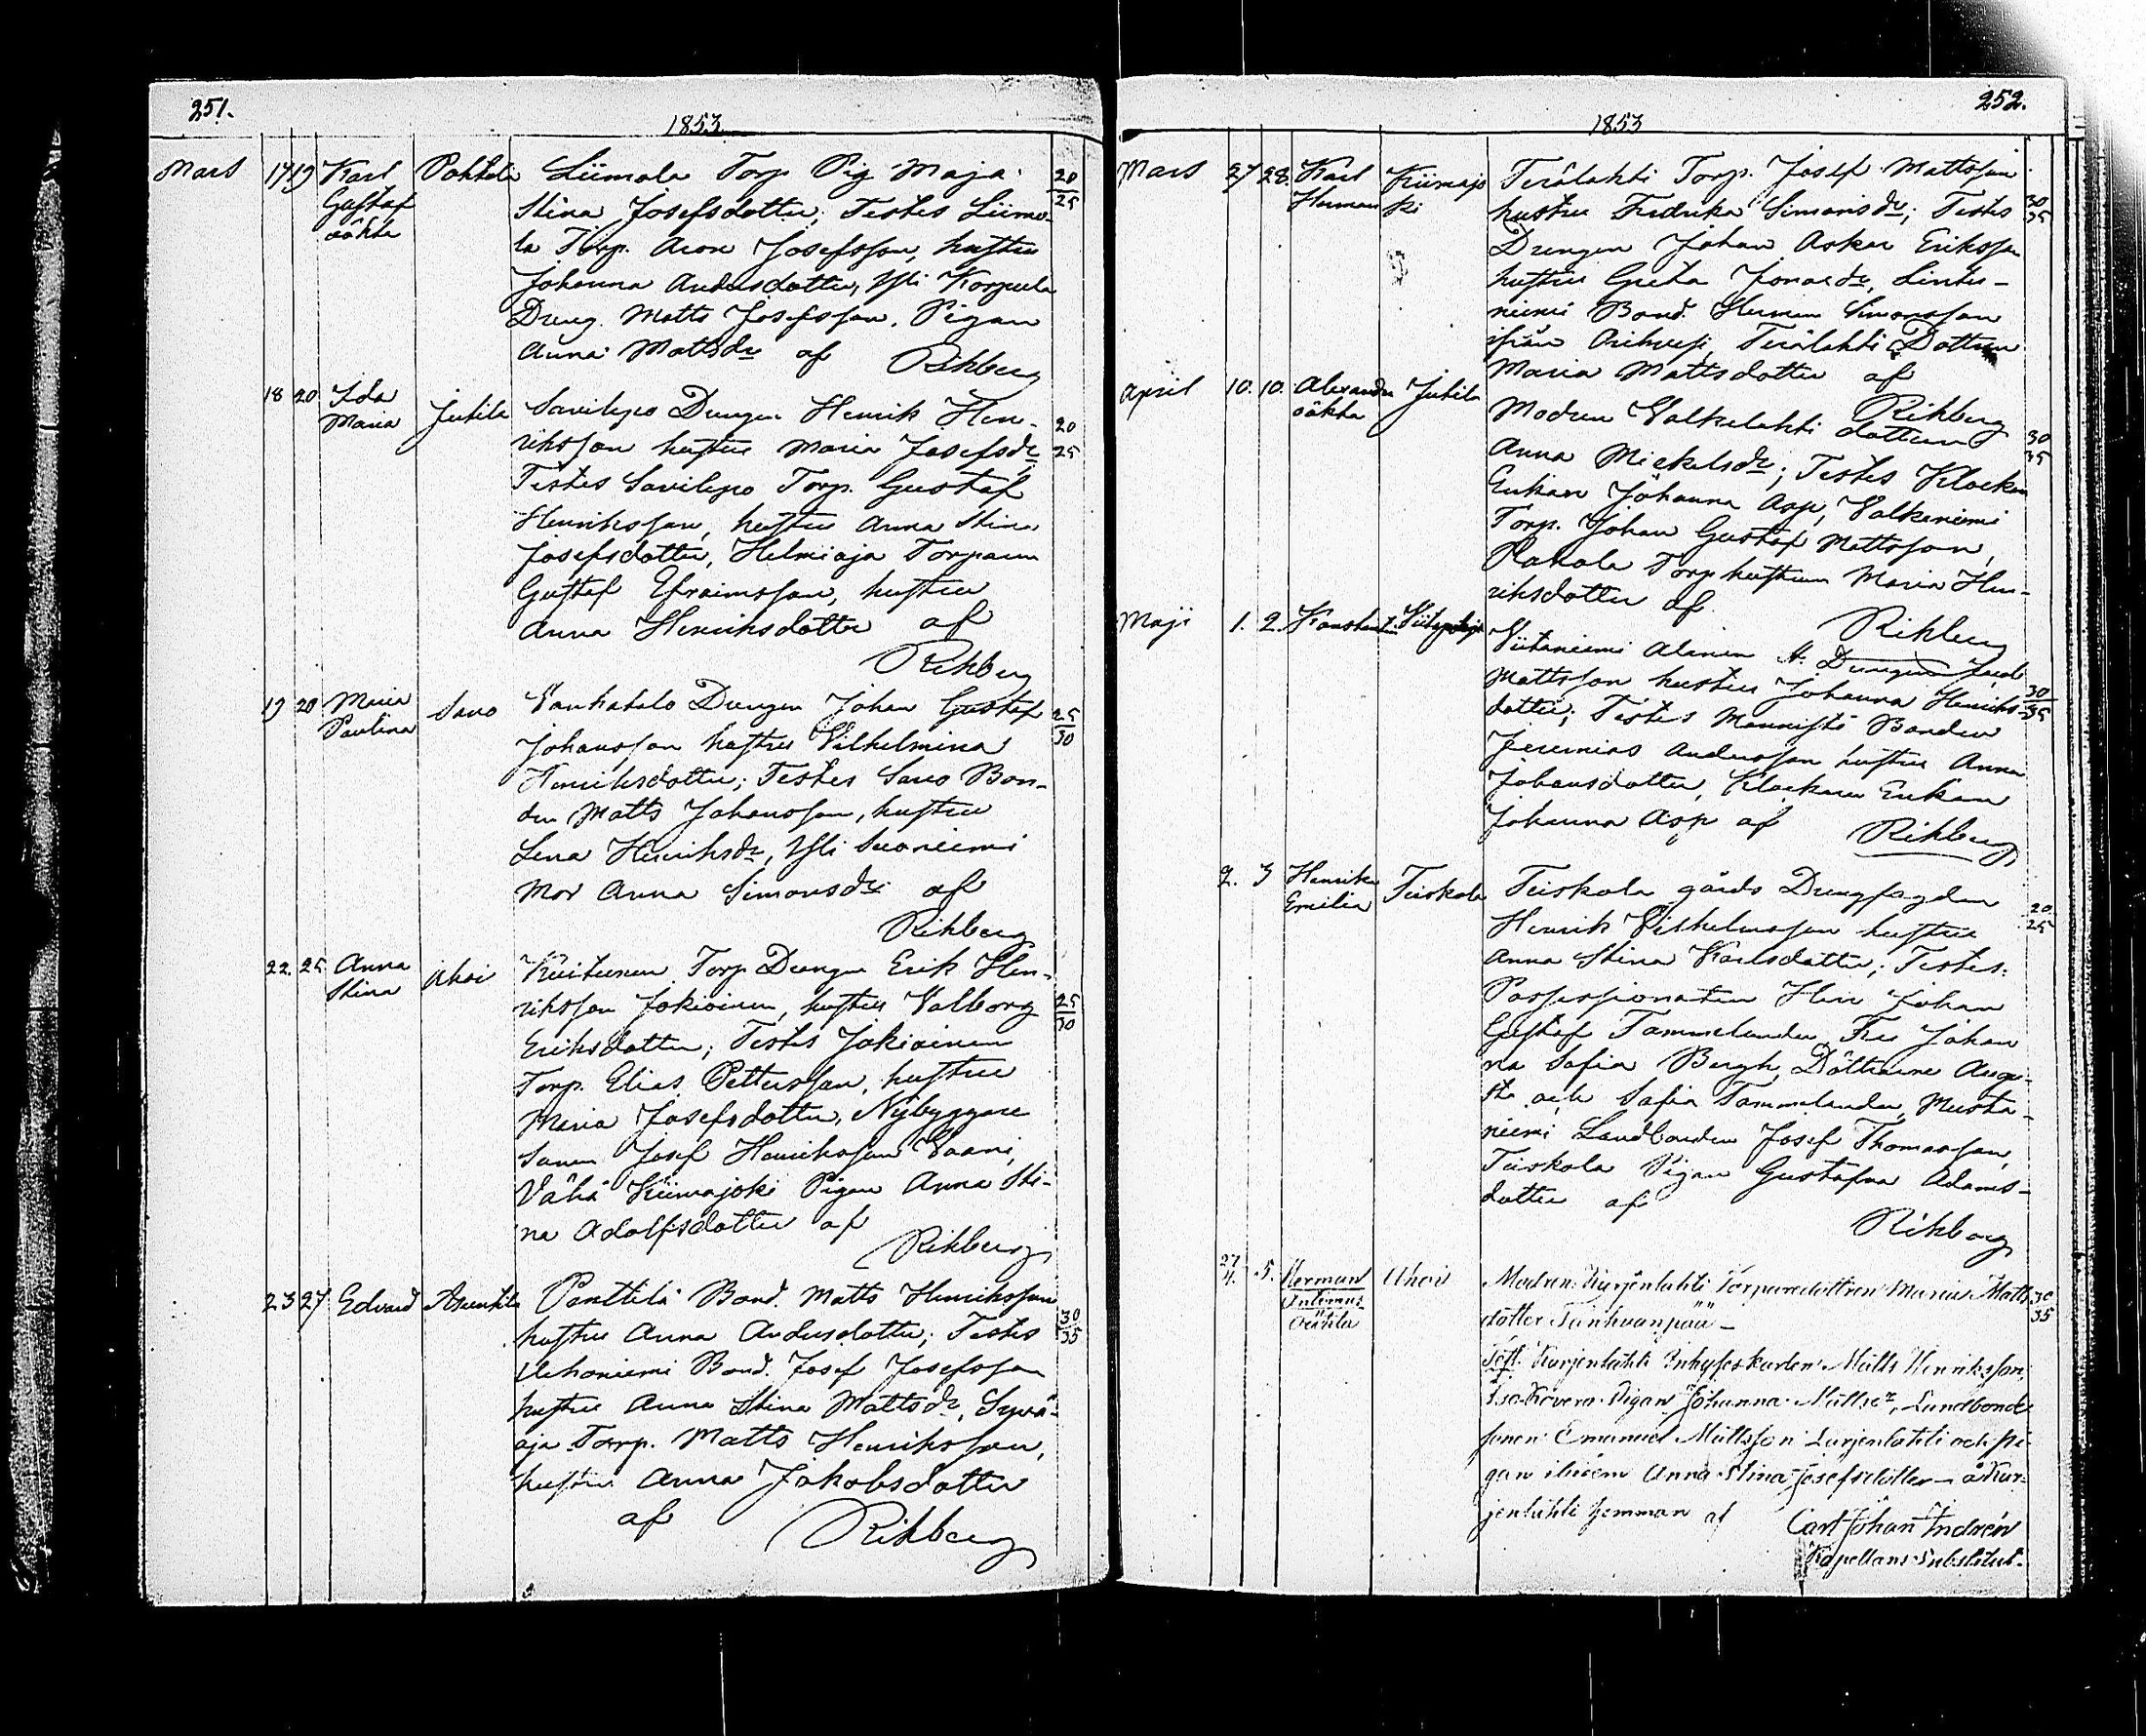 251.
1853
Mars 17 19 Karl Pohtela Liimola Torp. Pig. Maja 20
Gustaf Stina Josefsdotter; Testes Liimo- 25
oäkta la Torp. Aron Josefsson, hustru
Johanna Andersdotter, Yli Korpula
Dreng. Matts Josefsson, Pigan
Anna Mattsdr af Rihberg
18 20 Ida Jutila Savilepo Drengen Henrik Hen- 20
Maria riksson hustru Maria Josefsdr 25
Testes Savilepo Torp. Gustaf
Henriksson, hustru Anna Stina
Josefsdotter, Helmioja Torparen
Gustaf Efraimsson, hustru
Anna Henriksdotter af
Rihberg
19 20 Maria Savo Vanhatalo Drengen Johan Gustaf 25
Paulina Johansson hustru Vilhelmina 30
Henriksdotter; Testes Savo Bon-
den Matts Johansson, hustru
Lena Henriksdr, Yli Suoniemi
Mor Anna Simonsdr af
Rihberg
22. 25 Anna Ahoi Torp. Drengen Erik Hen-
Stina riksson Jokioinen, hustru Valborg 25
Eriksdotter; Testes Jokioinen 30
Torp. Elias Pettersson, hustru
Maria Josefsdotter, Nybyggare
Sonen Josef Henriksson Vaani,
Vähä Kiimajoki Pigan Anna Sti-
na Adolfsdotter af
Rihberg
23 27 Edvard Penttilä Bond. Matts Henriksson 30
hustru Anna Andersdotter; Testes 35
Uehoniemi Bond. Josef Josefsson
hustru Anna Stina Mattsdr, Syvä-
oja Torp. Matts Henriksson,
hustru Anna Jakobsdotter
af Rihberg
252.
1853
Mars 27 28. Karl Kiimajo Terälahti Torp. Josef Mattsson 30
Herman ki hustru Fredrika Simonsdr; Testes 35
Drengen Johan Oskar Eriksson
hustru Greta Jonaedr, Lintu-
niemi Bond. Herman Simonsson
ifrån Orihvesi, Terälahti Dottren
Maria Mattsdotter af
Rihberg
April 10. 10. Alexander Jutila Modren Valkelahti dottren 30
oäkta Anna Mickelsdr; Testes Klockare 35
Enkan Johanna Asp, Valkeniemi
Torp. Johan Gustaf Mattsson,
Torp hustrun Maria Hen-
riksdotter af
Rihberg
Maji 1. 2. Konstantin Viitaniemi Alanen A. Drengen Jacob 30
Mattsson hustru Johanna Henriks- 35
dotter; Testes Mannistö Bonden
Jeremias Andersson hustru Anna
Johansdotter, Klockare Enkan
Johanna Asp af
Rihberg
2. 3 Henrika Teiskola Teiskola gårds Drengfogden 20
Emilia Henrik Vilhelmsson hustru 25
Anna Stina Karlsdotter; Testes:
Possessionaten Herr Johan
Gustaf Tammelander, Fru Johan
na Sofia Bergh, Döttrarne Augu-
sta och Sofia Tammelander, Musta-
niemi Landbonden Josef Thomasson,
Teiskola Pigan Gustafva Adams-
dotter af
Rihberg
27/4. 5. Herman Ahois Modren: Kurjenlahti Torparedottren Maria Matts 30
Anterus dotter Tanhuanpää — 35
Oäkta Test. Kurjenlahti Inhyseskarlen Matts Henriksson,
Iso-Kovero Pigan Johanna Mattsdr, Landbonde
sonen Emanuel Mattsson Kurjenlahti och pi-
gan ibidem Anna Stina Josefsdotter — å Kur-
jenlahti hemman af Carl Johan Indrén
Kapellans-Substitut.